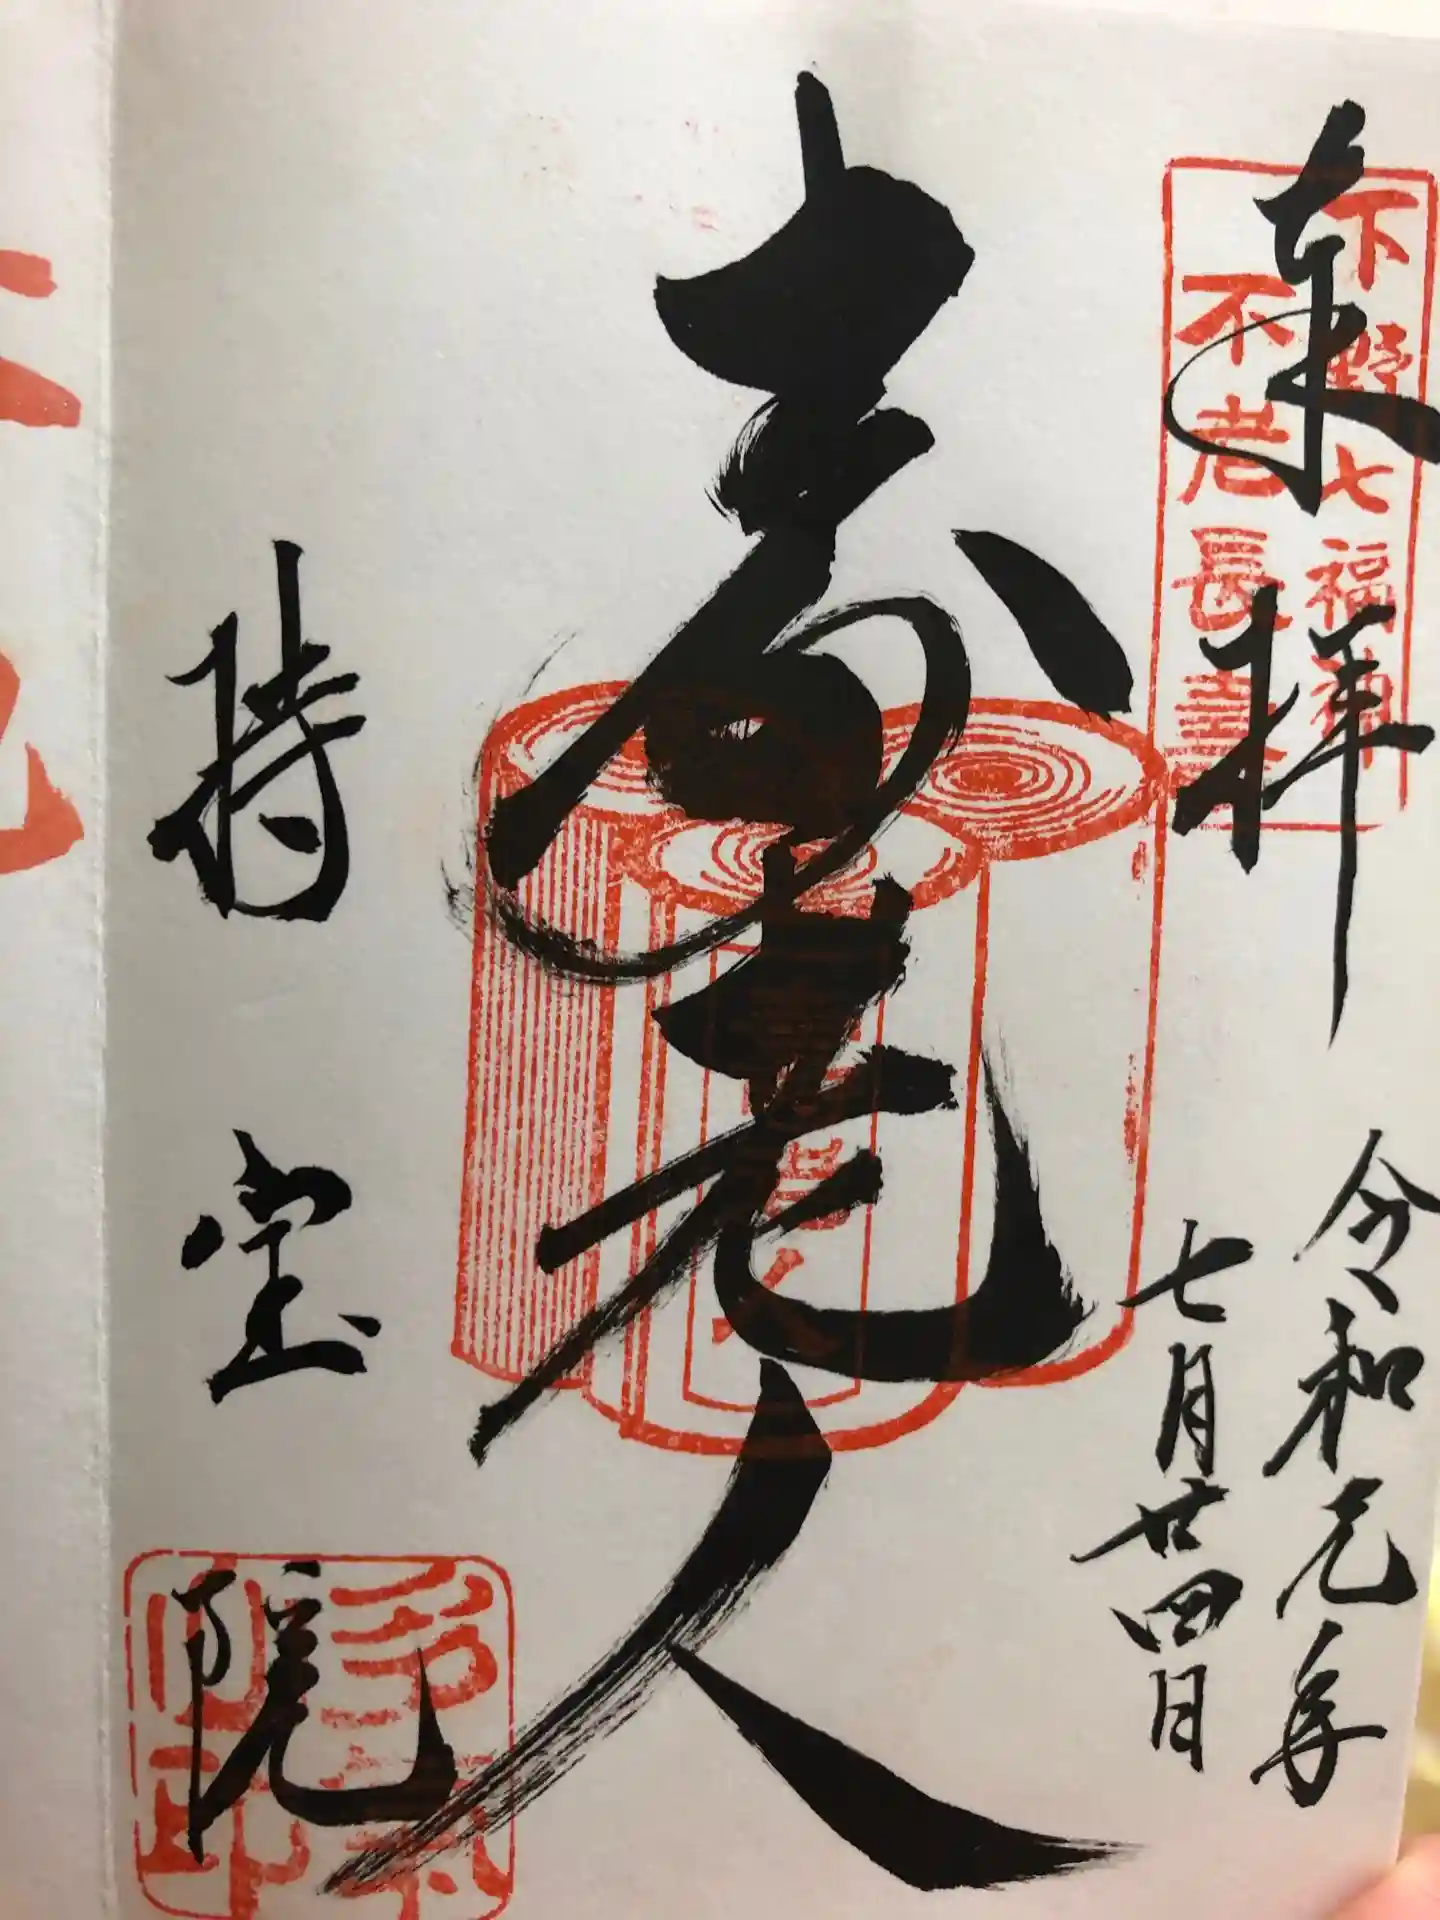 来拝
下野七福神
不老長寿
令和元年
七月廿四日
寿老人
寿老人
持宝院